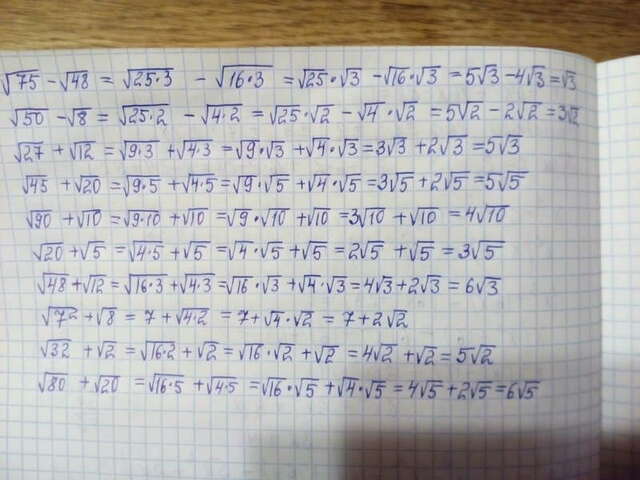 √75 - √48 = √25·3 - √16·3 = √25·√3 - √16·√3 = 5√3 - 4√3 = √3
√50 - √8 = √25·2 - √4·2 = √25·√2 - √4·√2 = 5√2 - 2√2 = 3√2
√27 + √12 = √9·3 + √4·3 = √9·√3 + √4·√3 = 3√3 + 2√3 = 5√3
√45 + √20 = √9·5 + √4·5 = √9·√5 + √4·√5 = 3√5 + 2√5 = 5√5
√90 + √10 = √9·10 + √10 = √9·√10 + √10 = 3√10 + √10 = 4√10
√20 + √5 = √4·5 + √5 = √4·√5 + √5 = 2√5 + √5 = 3√5
√48 + √12 = √16·3 + √4·3 = √16·√3 + √4·√3 = 4√3 + 2√3 = 6√3
√7² + √8 = 7 + √4·2 = 7 + √4·√2 = 7 + 2√2
√32 + √2 = √16·2 + √2 = √16·√2 + √2 = 4√2 + √2 = 5√2
√80 + √20 = √16·5 + √4·5 = √16·√5 + √4·√5 = 4√5 + 2√5 = 6√5